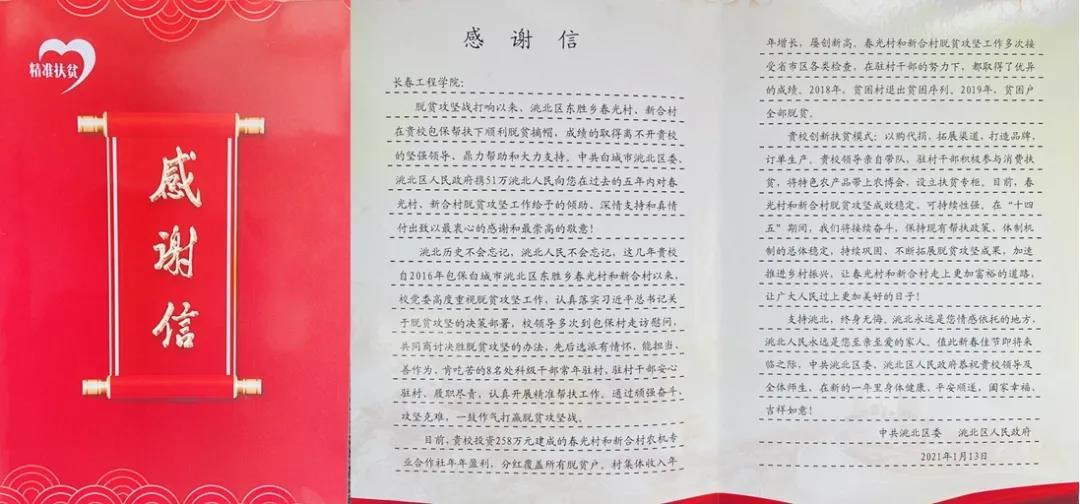 精准扶贫
感
谢
信
感谢信
长春工程学院:
脱贫攻坚战打响以来、洮北区东胜乡春光村、新合村
在贵校包保帮扶下顺利脱贫摘帽,成绩的取得离不开贵校
的坚强领导、鼎力帮助和大力支持。中共白城市洮北区委、
洮北区人民政府携51万洮北人民向您在过去的五年内对春
光村、新合村脱贫攻坚工作给予的倾助、深情支持和真情
付出致以最衷心的感谢和最崇高的敬意!
洮北历史不会忘记,洮北人民不会忘记,这几年贵校
自2016年包保白城市洮北区东胜乡春光村和新合村以来,
校党委高度重视脱贫攻坚工作,认真落实习近平总书记关
于脱贫攻坚的决策部署,校领导多次到包保村走访慰问,
共同商讨决胜脱贫攻坚的办法,先后选派有情怀,能担当、
善作为、肯吃苦的8名处科级干部常年驻村,驻村干部安心
驻村、履职尽责,认真开展精准帮扶工作。通过顽强奋斗、
攻坚克难,一鼓作气打赢脱贫攻坚战。
目前,贵校投资258万元建成的春光村和新合村农机专
业合作社年年盈利,分红覆盖所有脱贫户。村集体收入年
年增长,屡创新高。春光村和新合村脱贫攻坚工作多次接
受省市区各类检查,在驻村干部的努力下,都取得了优异
的成绩。2018年,贫困村退出贫困序列。2019年,贫困户
全部脱贫。
贵校创新扶贫模式:以购代捐,拓展渠道,打造品牌,
订单生产。贵校领导亲自带队,驻村干部积极参与消费扶
贫,将特色农产品带上农博会,设立扶贫专柜。目前,春
光村和新合村脱贫攻坚成效稳定、可持续性强。在“十四
五”期间,我们将接续奋斗,保持现有帮扶政策、体制机
制的总体稳定,持续巩固、不断拓展脱贫攻坚成果,加速
推进乡村振兴,让春光村和新合村走上更加富裕的道路,
让广大人民过上更加美好的日子!
支持洮北,终身无悔,洮北永远是您情感依托的地方,
洮北人民永远是您至亲至爱的家人。值此新春佳节即将来
临之际,中共洮北区委、洮北区人民政府恭祝贵校领导及
全体师生,在新的一年里身体健康、平安顺遂,阖家幸福、
吉祥如意!
中共洮北区委 洮北区人民政府
2021年1月13日